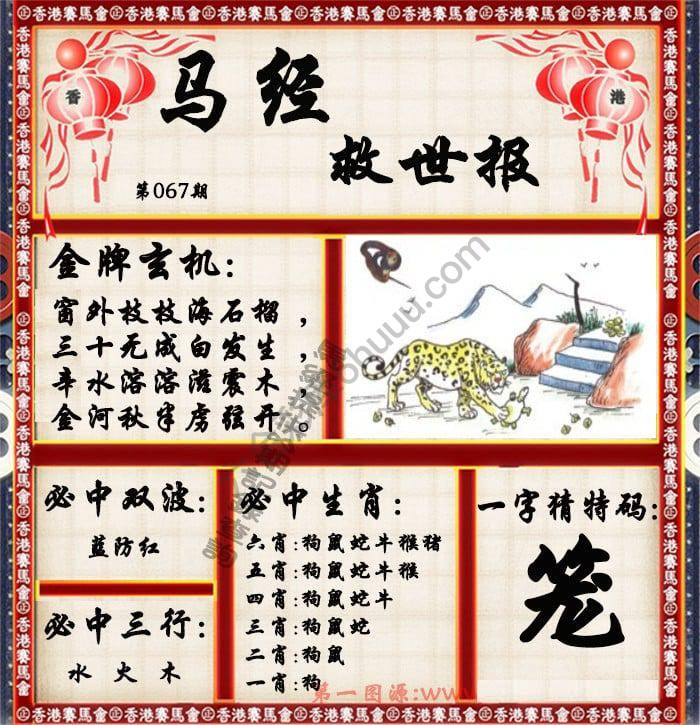 香港賽馬會
香
港
马经
救世报
第067期
金牌玄机:
窗外枝枝海石榴,
三十无成白发生,
辛水溶溶滋震木,
金河秋半虏弦开。
必中双波:
蓝防红
必中三行:
水 火 木
必中生肖:
六肖:狗鼠蛇牛猴猪
五肖:狗鼠蛇牛猴
四肖:狗鼠蛇牛
三肖:狗鼠蛇
二肖:狗鼠
一肖:狗
一字猜特码:
笼
第一图源:www